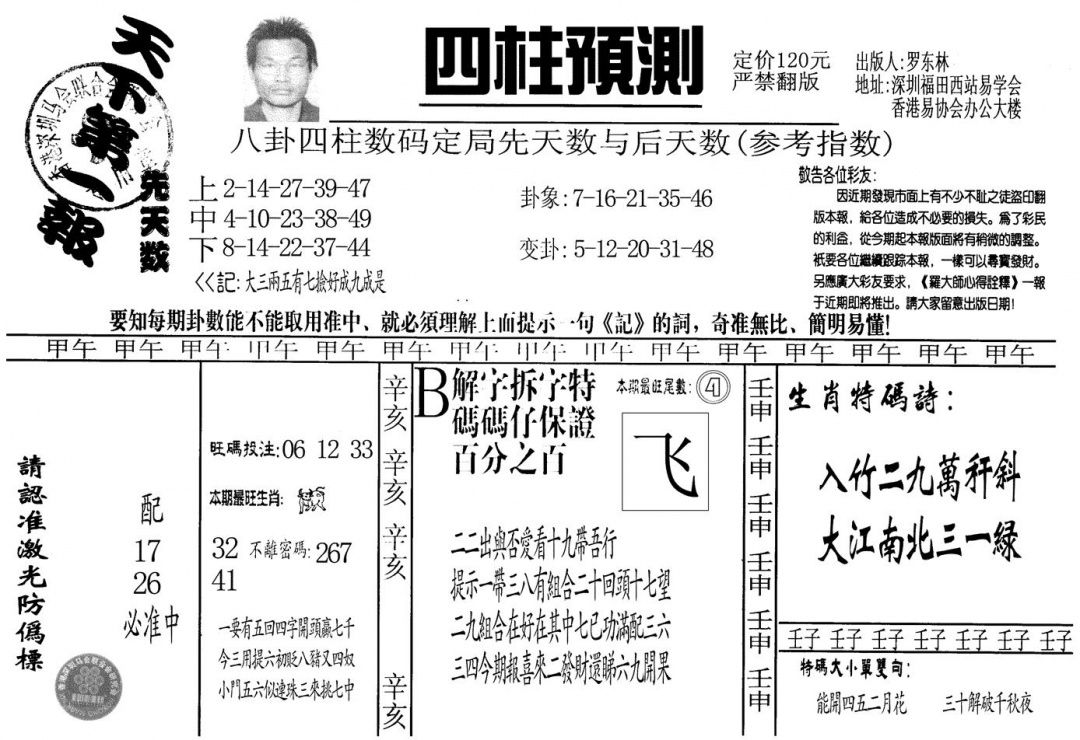 天下第一報
四柱預測
定价120元
严禁翻版
出版人:罗东林
地址:深圳福田西站易学会
香港易协会办公大楼
八卦四柱数码定局先天数与后天数(参考指数)
先天数
上 2-14-27-39-47
中 4-10-23-38-49
下 8-14-22-37-44
<<記:大三兩五有七撿好成九成是
卦象:7-16-21-35-46
变卦:5-12-20-31-48
敬告各位彩友:
因近期發現市面上有不少不耻之徒盜印翻
版本報,給各位造成不必要的損失。為了彩民
的利益,從今期起本報版面將有稍微的調整。
衹要各位繼續跟踪本報,一樣可以尋寶發財。
另應廣大彩友要求,《羅大師心得詮釋》一報
于近期即將推出。請大家留意出版日期!
要知每期卦數能不能取用准中、就必須理解上面提示一句《記》的詞,奇准無比、簡明易懂!
甲午 甲午 甲午 甲午 甲午 甲午 甲午 甲午 甲午 甲午 甲午 甲午 甲午 甲午 甲午
請認准激光防僞標
配
17
26
必准中
旺碼投注:06 12 33
本期最旺生肖:
32 不離密碼:267
41
一要有五回四字開頭贏七千
今三用提六初貶八豬又四奴
小門五六似連珠三來挑七中
辛亥
辛亥
辛亥
辛亥
B解字拆字特
碼碼仔保證
百分之百
本期最旺尾數:④
飞
二二出與否愛看十九帶吾行
提示一帶三八有組合二十回頭十七望
二九組合在好在其中七已功滿配三六
三四今期報喜來二發財還睇六九開果
壬申
壬申
壬申
壬申
壬申
壬申
生肖特碼詩:
入竹二九萬秆斜
大江南北三一緑
壬子 壬子 壬子 壬子 壬子 壬子 壬子
特碼大小單雙句:
能開四五二月花 三十解破千秋夜